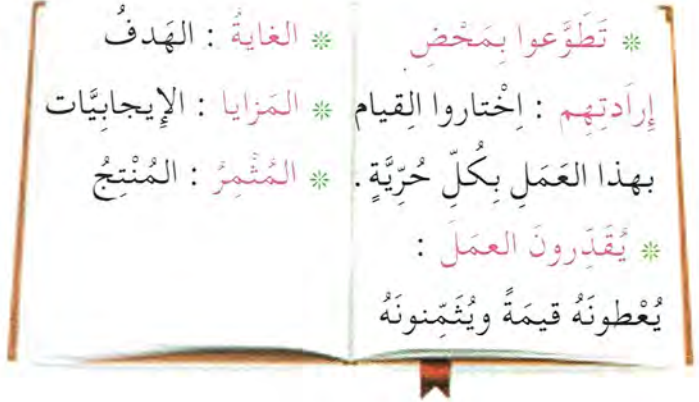 * تَطَوَّعوا بِمَحْضِ
إِرادَتِهِم : اِخْتاروا القِيام
بهذا العَمَلِ بِكُلِّ حُرِّيَّةٍ .
* يُقَدِّرونَ العمَلَ :
يُعْطونَهُ قيمَةً ويُثَمِّنونَهُ
* الغايةُ : الهَدفُ
* المَزايا : الإِيجابِيَّات
* المُثْمِرُ : المُنْتِجُ